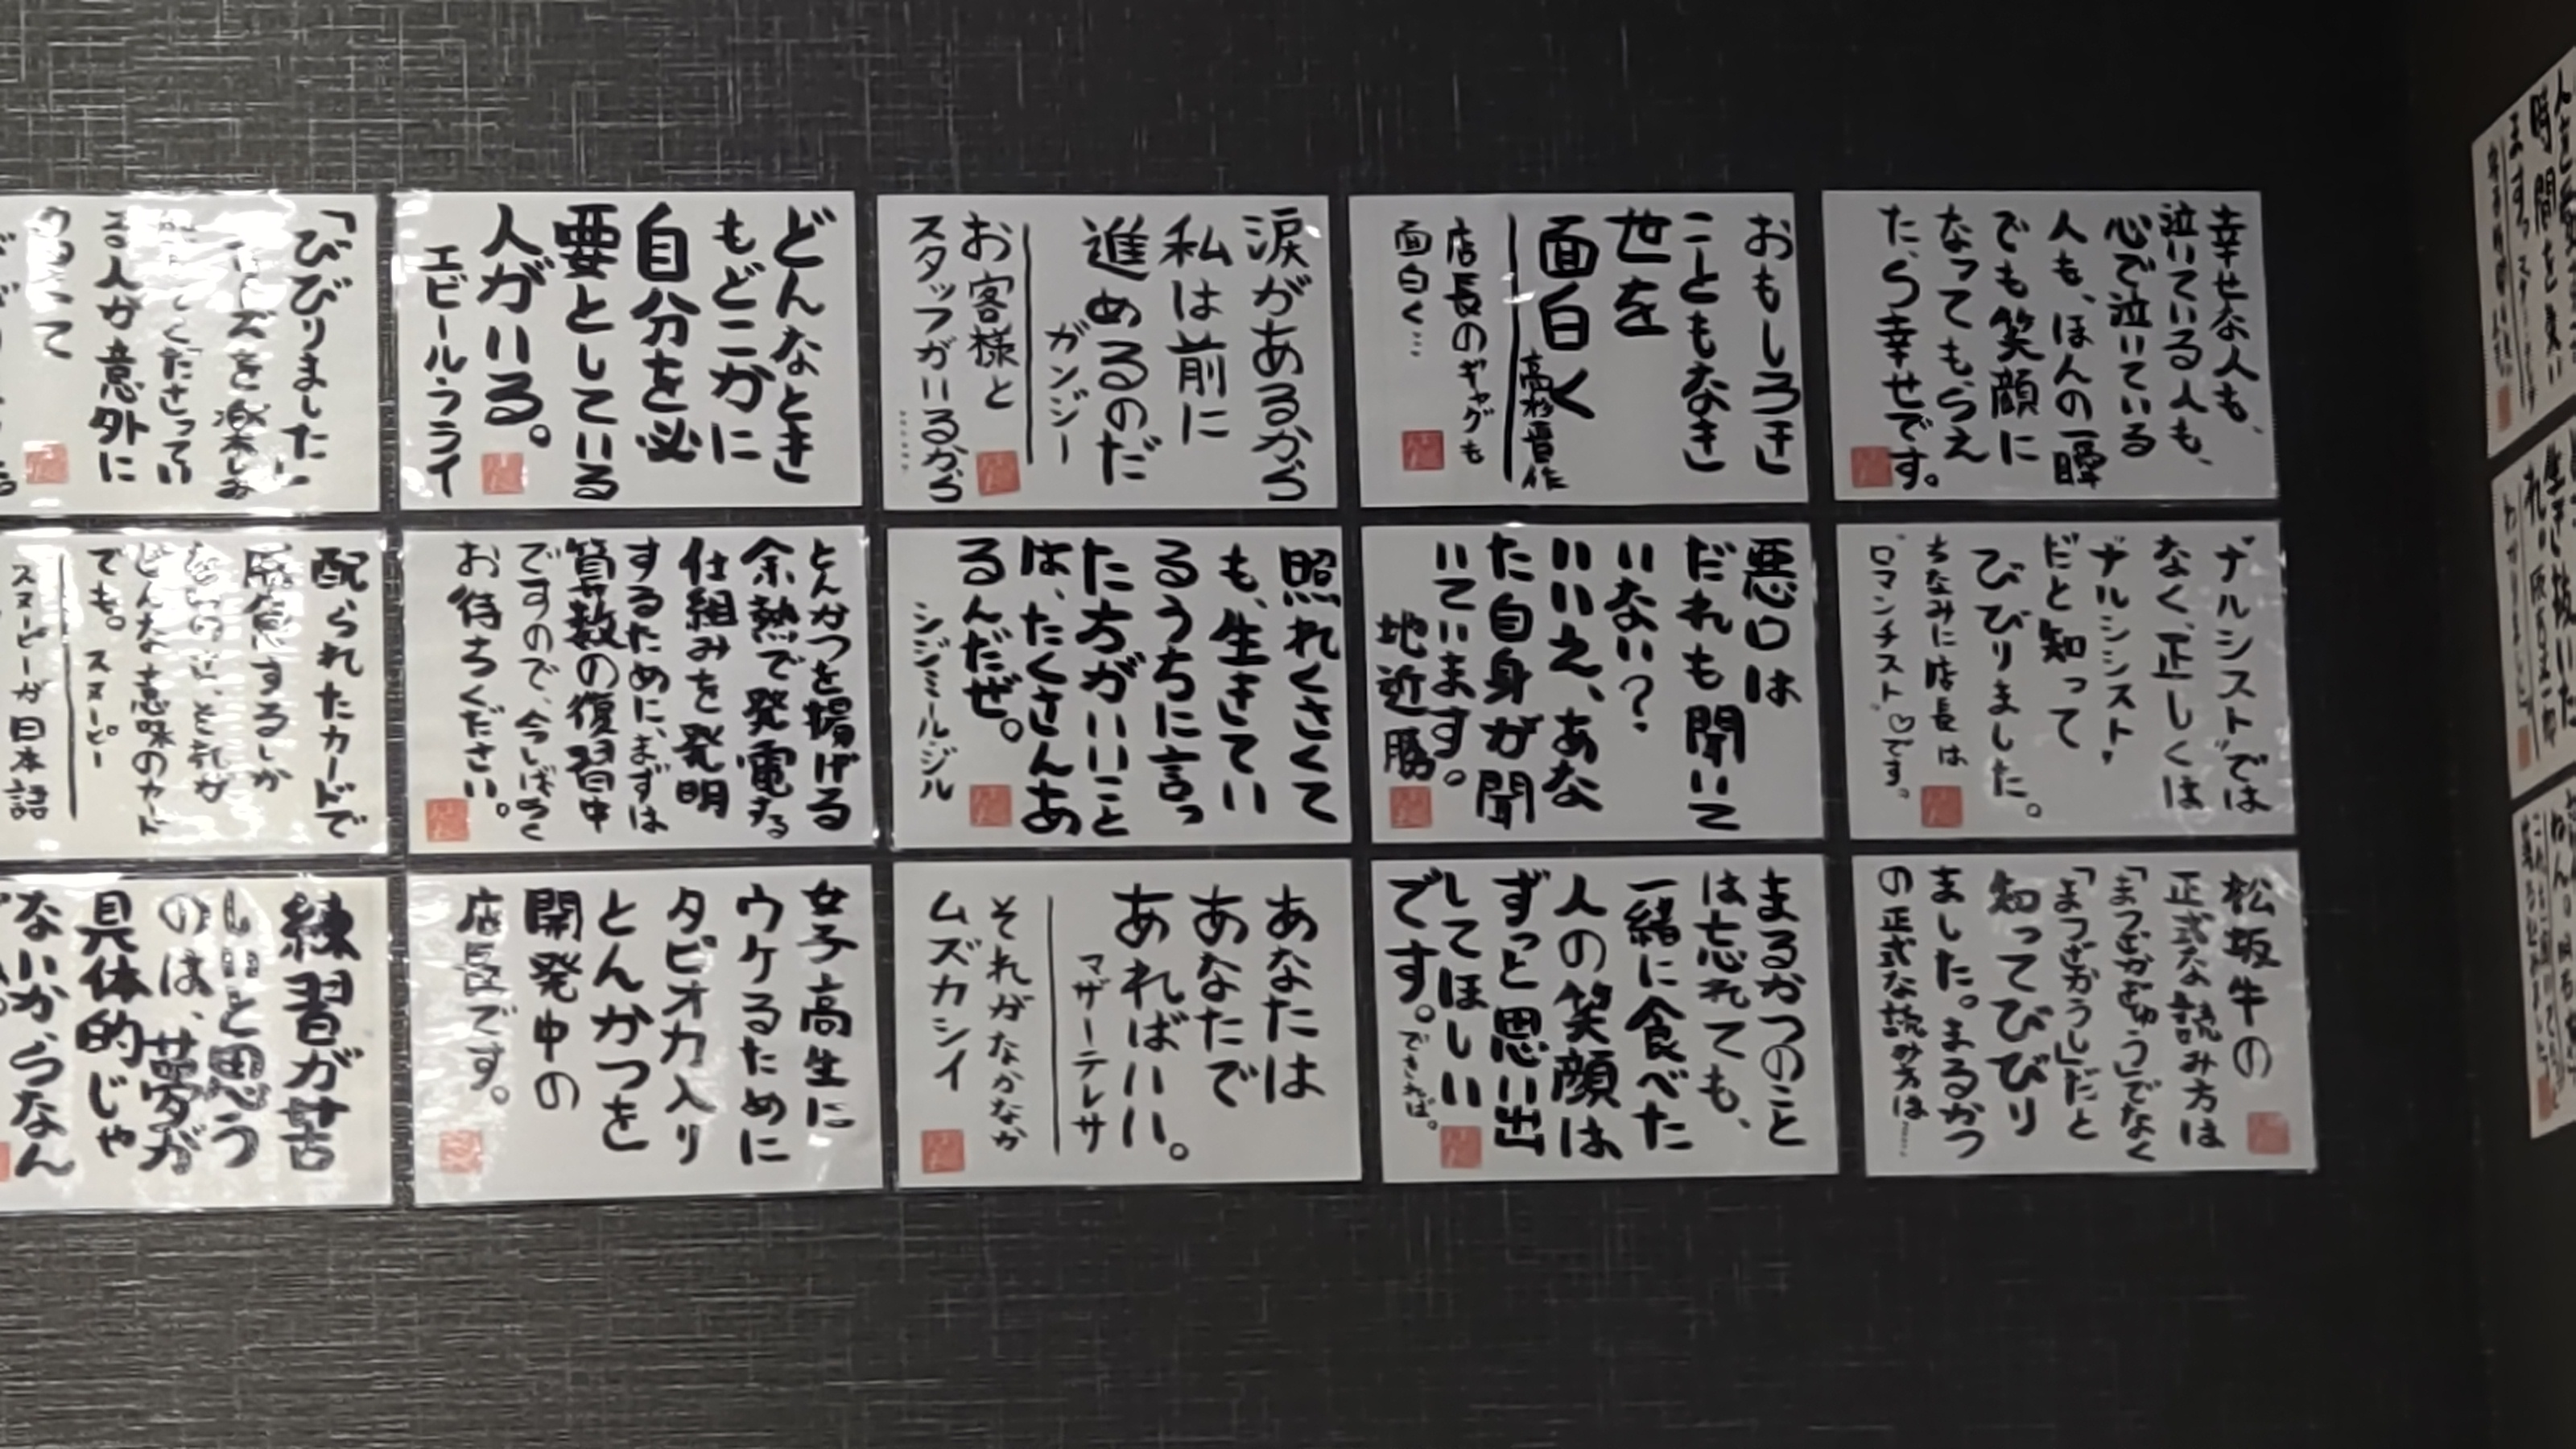 幸せな人も、
泣いている人も、
心で泣いている
人も、ほんの一瞬
でも笑顔に
なってもらえ
たら幸せです。
おもしろき
こともなき
世を
面白く
高杉晋作
店長のギャグも
面白く…
涙があるから
私は前に
進めるのだ
ガンジー
お客様と
スタッフがいるから
どんなとき
もどこかに
自分を必
要としている
人がいる。
エビール・ラライ
「びびりました」
シリーズを楽しみ
にしてくださってい
る人が意外に
"ナルシスト"では
なく、正しくは
"ナルシシスト"
だと知って
びびりました。
ちなみに店長は
"ロマンチスト"♡です。
悪口は
だれも聞いて
いない?
いいえ、あな
た自身が聞
いています。
地近勝
照れくさくて
も、生きてい
るうちに言っ
た方がいいこと
は、たくさんあ
るんだぜ。
シジミールジル
とんかつを揚げる
余熱で発電する
仕組みを発明
するために、まずは
算数の復習中
ですので、今しばらく
お待ちください。
配られたカードで
勝負するしか
ないのさ、それが
どんな意味のカード
でも。スヌーピー
スヌーピーが日本語
松坂牛の
正式な読み方は
「まつざかぎゅう」でなく
「まつざかうし」だと
知ってびびり
ました。まるかつ
の正式な読み方は……
まるかつのこと
は忘れても、
一緒に食べた
人の笑顔は
ずっと思い出
してほしい
です。できれば。
あなたは
あなたで
あればいい。
マザーテレサ
それがなかなか
ムズカシイ
女子高生に
ウケるために
タピオカ入り
とんかつを
開発中の
店長です。
練習が苦
しいと思う
のは、夢が
具体的じゃ
ないからなん